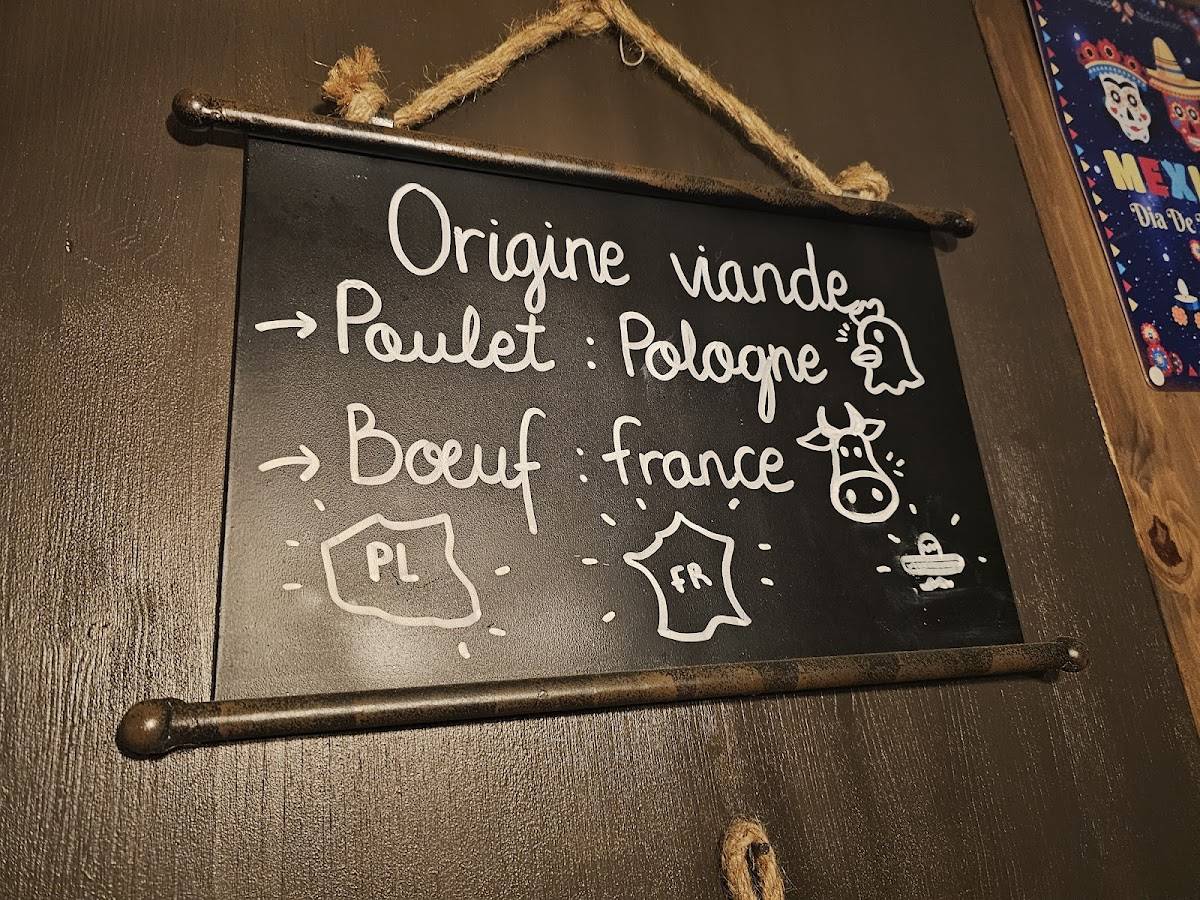 Origine viande
→ Poulet : Pologne
→ Bœuf : france
PL
FR
MEXI
Dia De